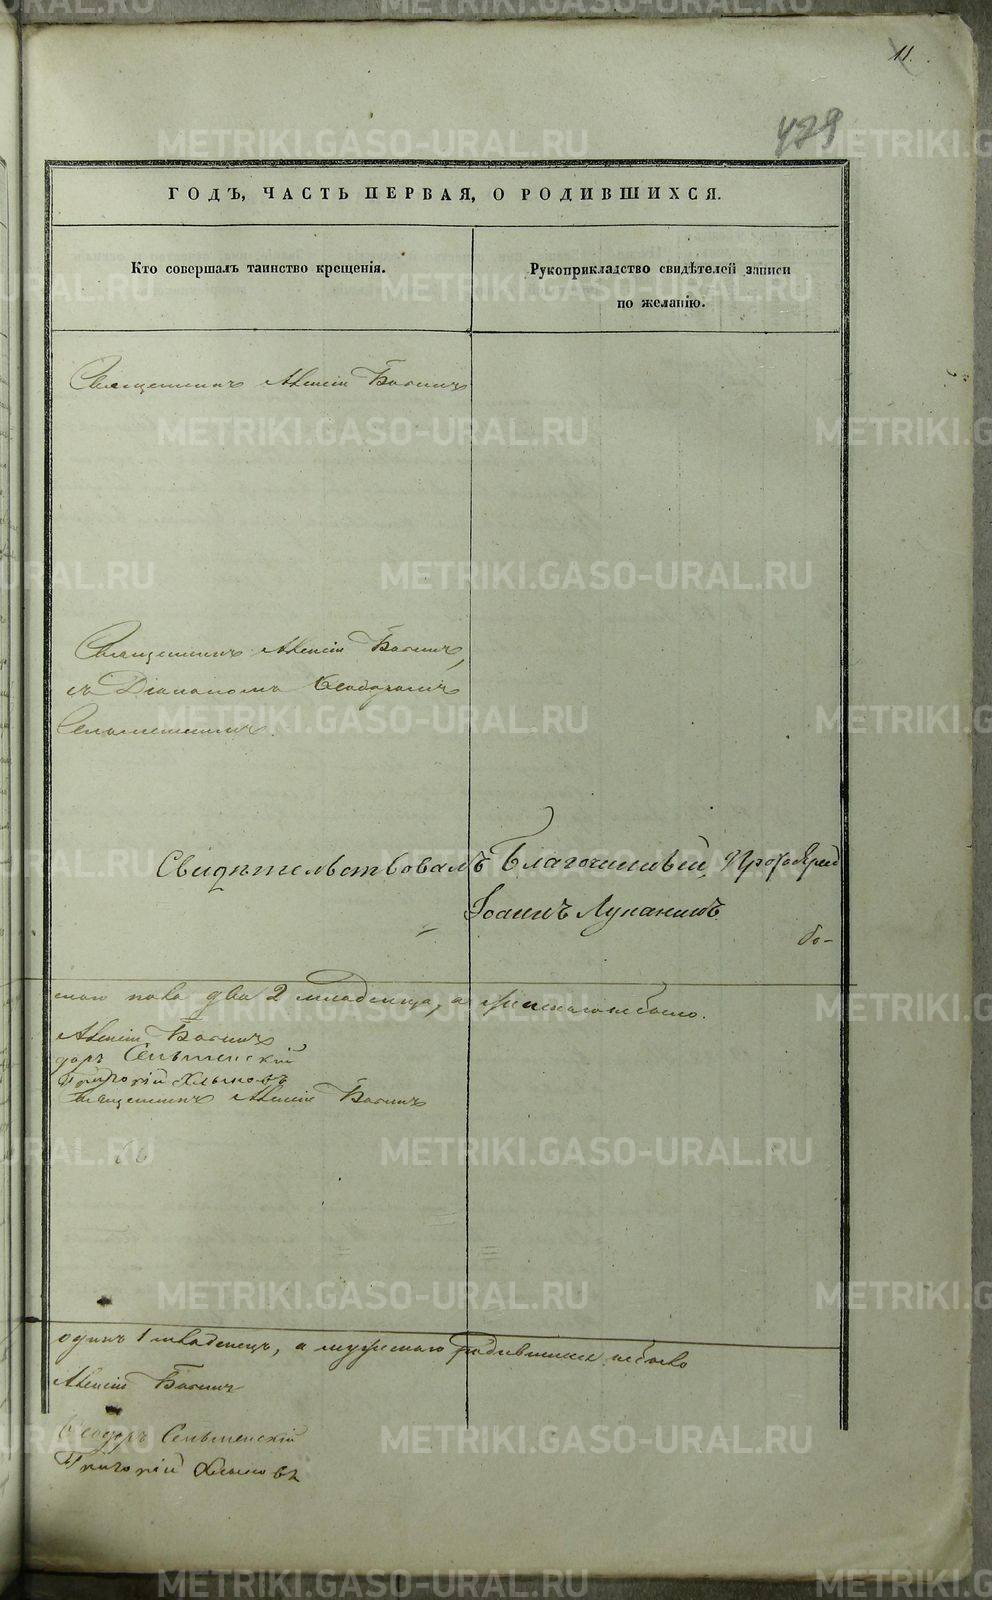 11.
429
ГОДЪ, ЧАСТЬ ПЕРВАЯ, О РОДИВШИХСЯ.
Кто совершалъ таинство крещенія.
Рукоприкладство свидѣтелей записи
по желанію.
Священникъ Алексій Богинъ
Священникъ Алексій Богинъ,
съ Діакономъ Ѳеодоромъ
Свидѣтельствовалъ Благочинный, Протоіерей
Іоаннъ Луканинъ
бо-
пола два 2 младенца, а небыло.
Алексій Богинъ
доръ Сельменскій
Григорій Хлыновъ
Священникъ Алексій Богинъ
одинъ 1 младенецъ, а мужескаго родившихся небыло
Алексій Богинъ
Ѳеодоръ Сельменскій
Григорій Хлыновъ
METRIKI.GASO-URAL.RU